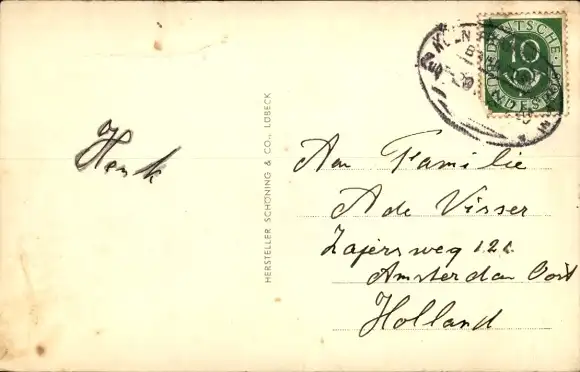 KÖLN
DEUTSCHE
10
BUNDESPOST
Henk
HERSTELLER SCHÖNING & CO., LÜBECK
Aan Familie
A de Visser
Zaaiersweg 121
Amsterdam Oost
Holland